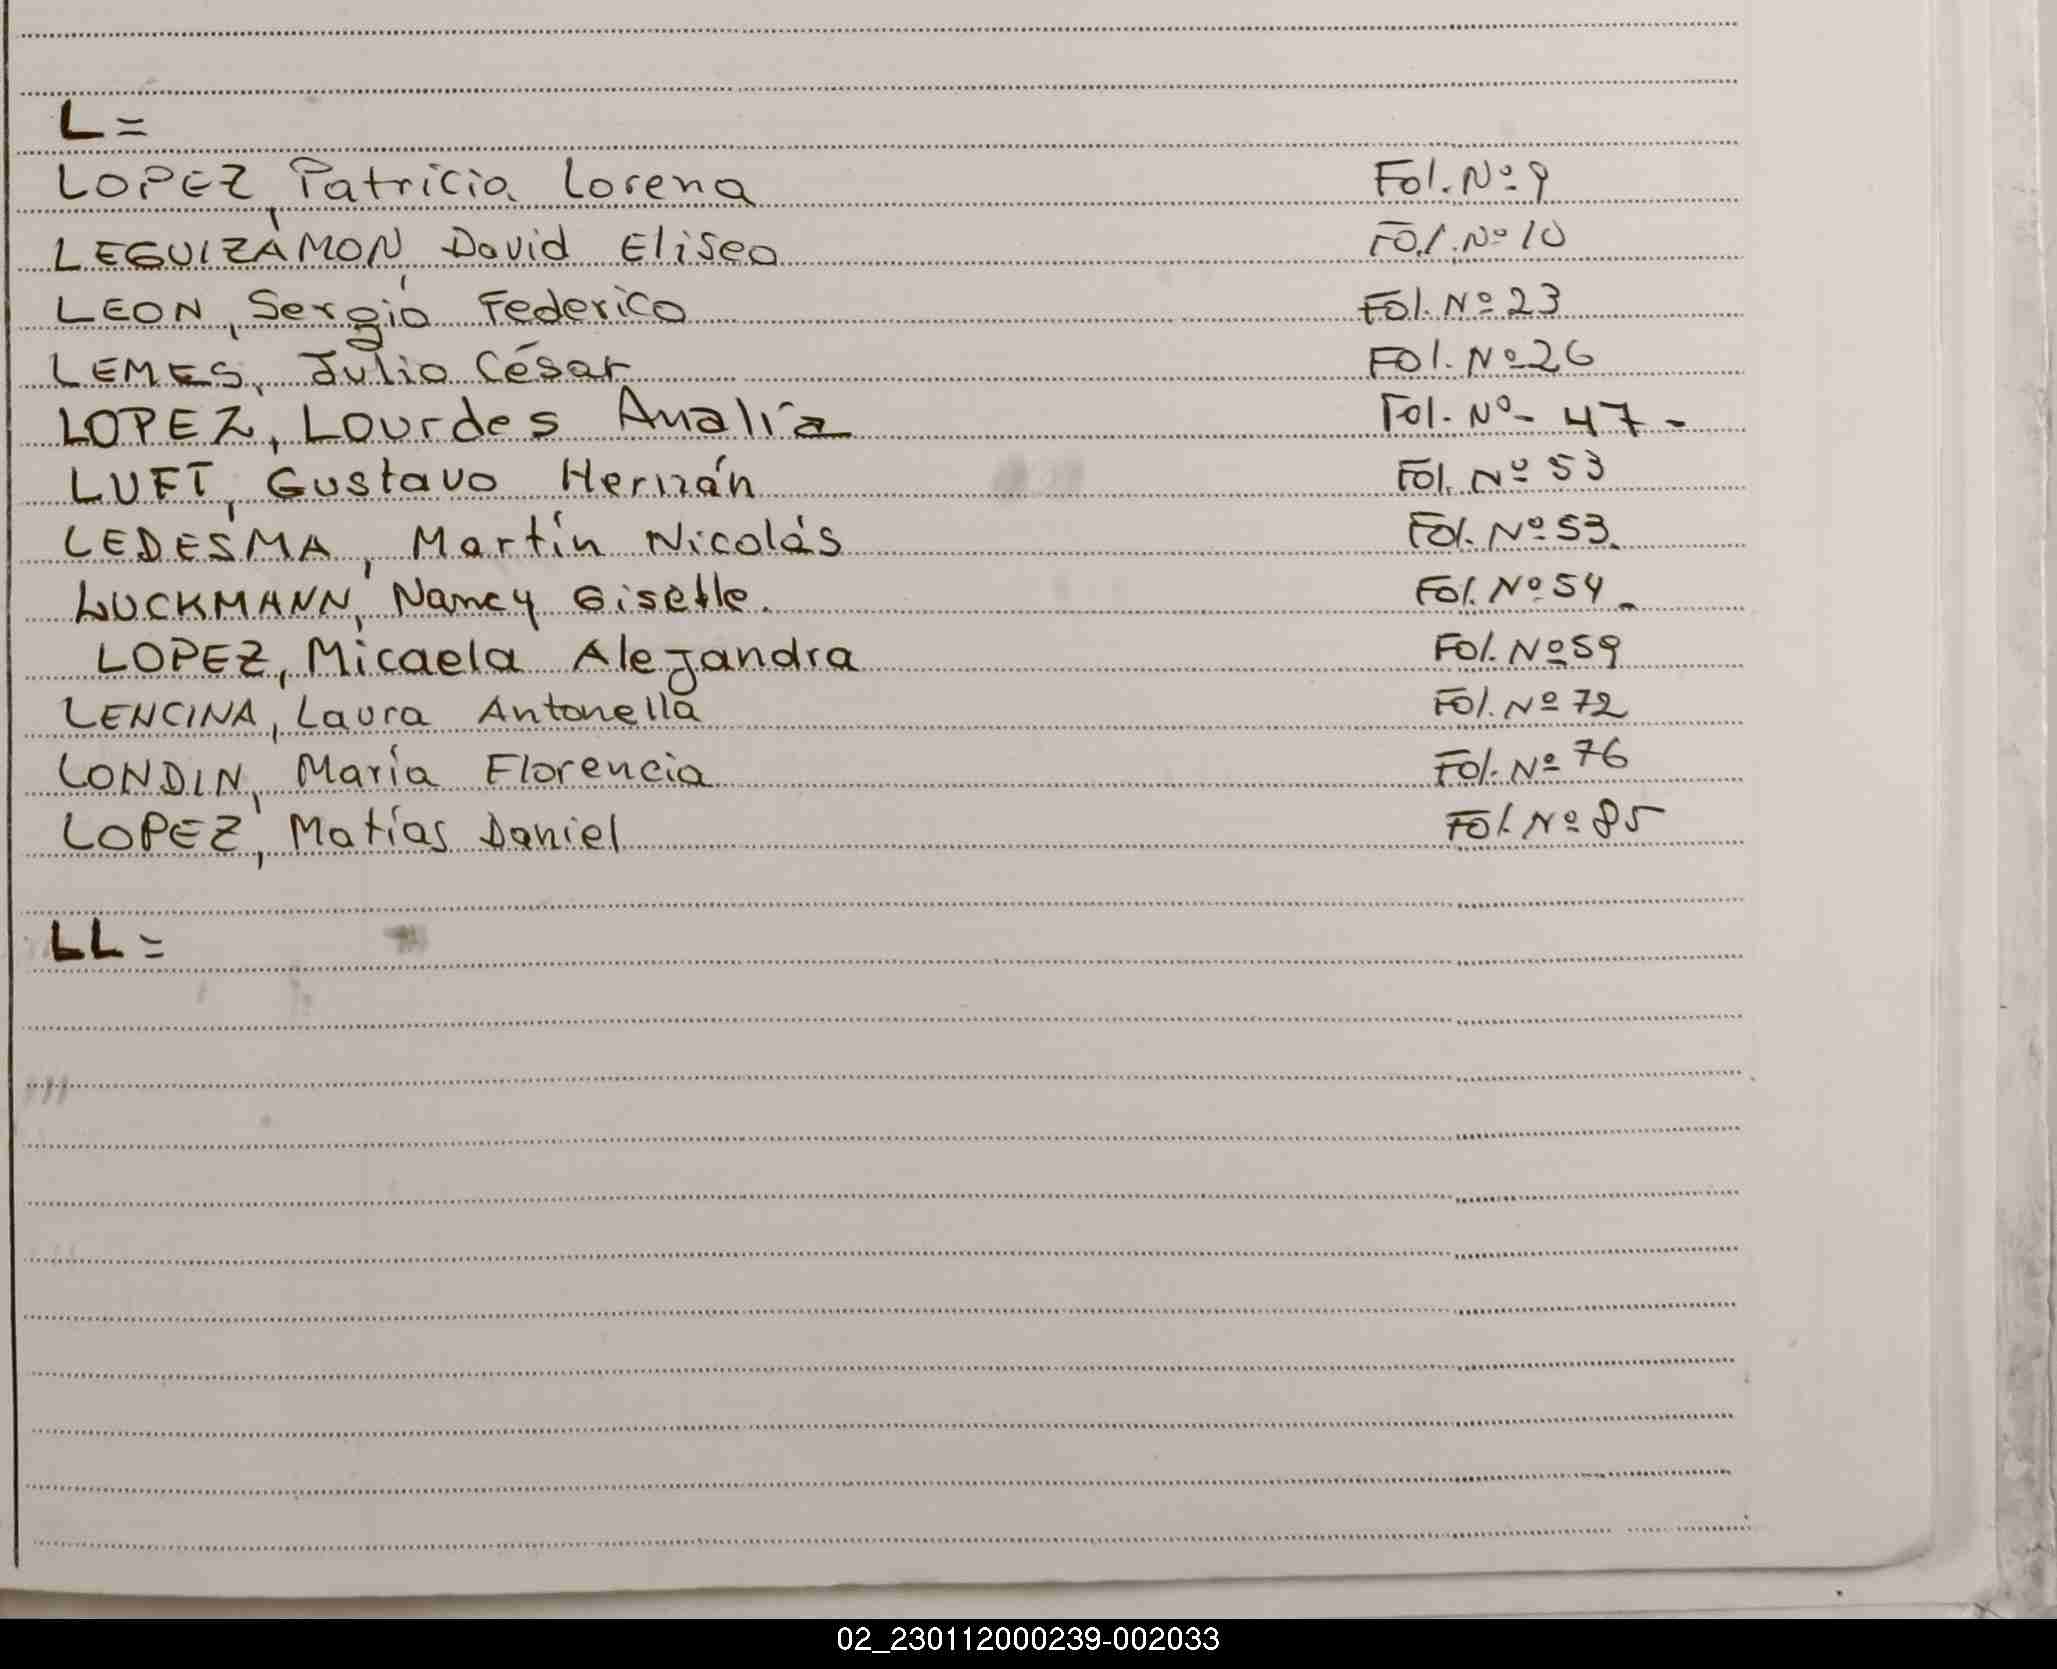 L=
LOPEZ, Patricia Lorena Fol. Nº 9
LEGUIZAMON, David Eliseo Fol. Nº 10
LEON, Sergio Federico Fol. Nº 23
LEMES, Julio César Fol. Nº 26
LOPEZ, Lourdes Analía Fol. Nº- 47-
LUFT, Gustavo Hernán Fol. Nº 53
LEDESMA, Martín Nicolás Fol. Nº 53.
LUCKMANN, Nancy Giselle. Fol. Nº 54.
LOPEZ, Micaela Alejandra Fol. Nº 59
LENCINA, Laura Antonella Fol. Nº 72
LONDIN, María Florencia Fol. Nº 76
LOPEZ, Matías Daniel Fol. Nº 85
LL=
02_230112000239-002033